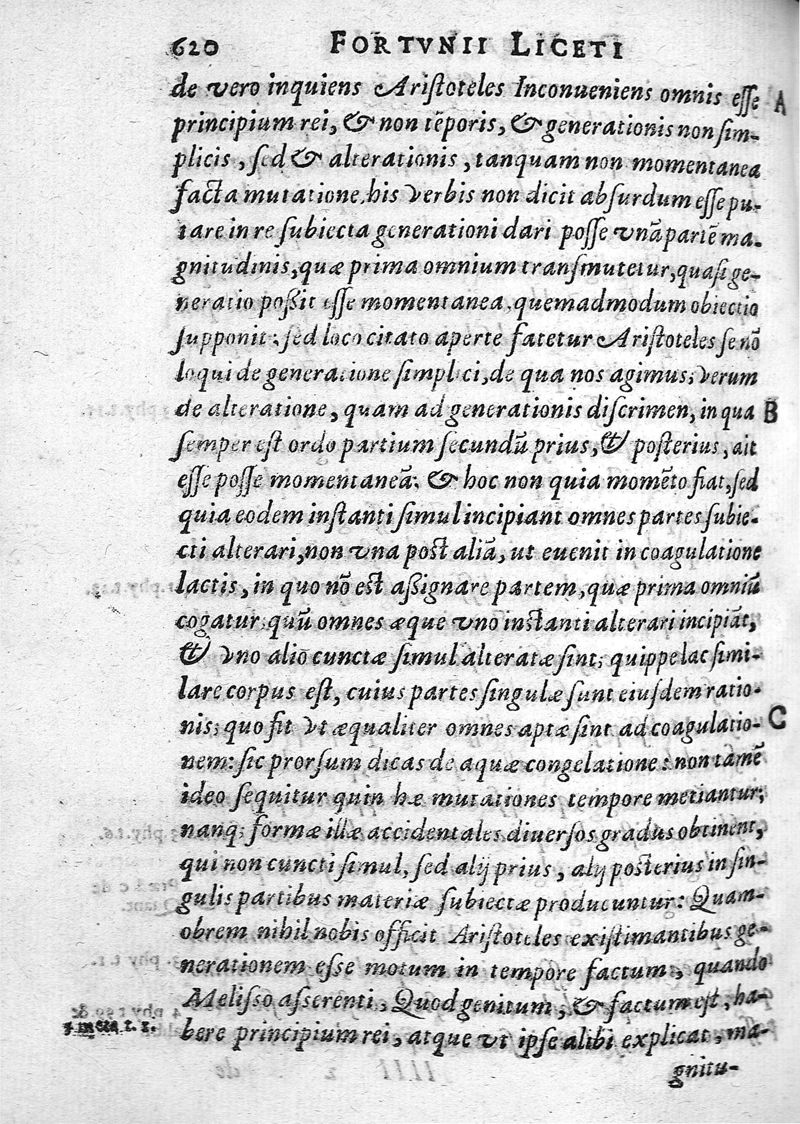 620 FORTVNII LICETI
de vero inquiens Aristoteles Inconueniens omnis esse A
principium rei, & non tẽporis, & generationis non sim-
plicis, sed & alterationis, tanquam non momentanea
facta mutatione, his verbis non dicit absurdum esse pu-
tare in re subiecta generationi dari posse vnã partẽ ma-
gnitudinis, quæ prima omnium transmutetur, quasi ge-
neratio poßit esse momentanea, quemadmodum obiectio
supponit: sed loco citato aperte fatetur Aristoteles se nõ
loqui de generatione simplici, de qua nos agimus; verum
de alteratione, quam ad generationis discrimen, in qua B
semper est ordo partium secundũ prius, & posterius, ait
esse posse momentaneã: & hoc non quia momẽto fiat, sed
quia eodem instanti simul incipiant omnes partes subie-
cti alterari, non vna post aliã, ut euenit in coagulatione
lactis, in quo nõ est aßignare partem, quæ prima omniũ
cogatur: quũ omnes æque vno instanti alterari incipiãt,
& vno alio cunctæ simul alteratæ sint; quippe lac simi-
lare corpus est, cuius partes singulæ sunt eiusdem ratio-
nis; quo fit vt æqualiter omnes aptæ sint ad coagulatio- C
nem: sic prorsum dicas de aquæ congelatione: non tamẽ
ideo sequitur quin hæ mutationes tempore metiantur;
nanq; formæ illæ accidentales diuersos gradus obtinent,
qui non cuncti simul, sed alij prius, alij posterius in sin-
gulis partibus materiæ subiectæ producuntur: Quam-
obrem nihil nobis officit Aristoteles existimantibus ge-
nerationem esse motum in tempore factum, quando
Melisso asserenti, Quod genitum, & factum est, ha-
bere principium rei, atque ut ipse alibi explicat, ma-
gnitu-